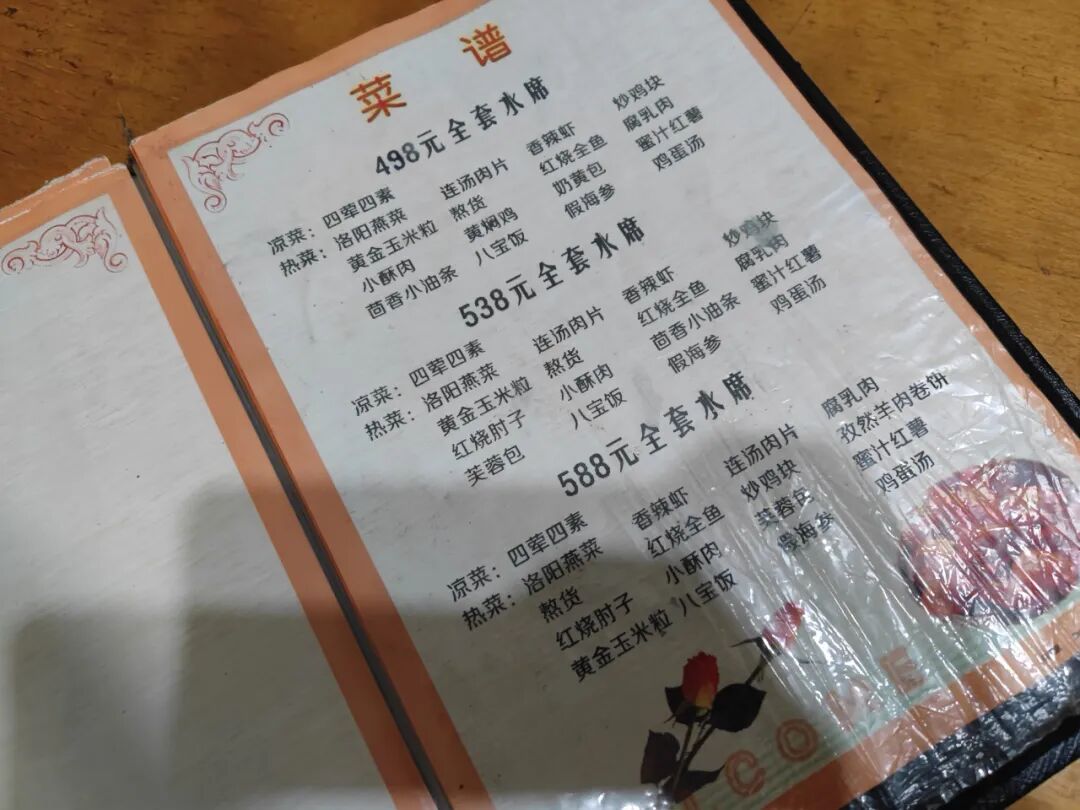 菜 谱
498元全套水席
凉菜：四荤四素
热菜：洛阳燕菜 连汤肉片 香辣虾 炒鸡块
黄金玉米粒 熬货 红烧全鱼 腐乳肉
小酥肉 黄焖鸡 奶黄包 蜜汁红薯
茴香小油条 八宝饭 假海参 鸡蛋汤
538元全套水席
凉菜：四荤四素
热菜：洛阳燕菜 连汤肉片 香辣虾 炒鸡块
黄金玉米粒 熬货 红烧全鱼 腐乳肉
红烧肘子 小酥肉 茴香小油条 蜜汁红薯
芙蓉包 八宝饭 假海参 鸡蛋汤
588元全套水席
凉菜：四荤四素
热菜：洛阳燕菜 香辣虾 连汤肉片 腐乳肉
熬货 红烧全鱼 炒鸡块 孜然羊肉卷饼
红烧肘子 小酥肉 芙蓉包 蜜汁红薯
黄金玉米粒 八宝饭 假海参 鸡蛋汤